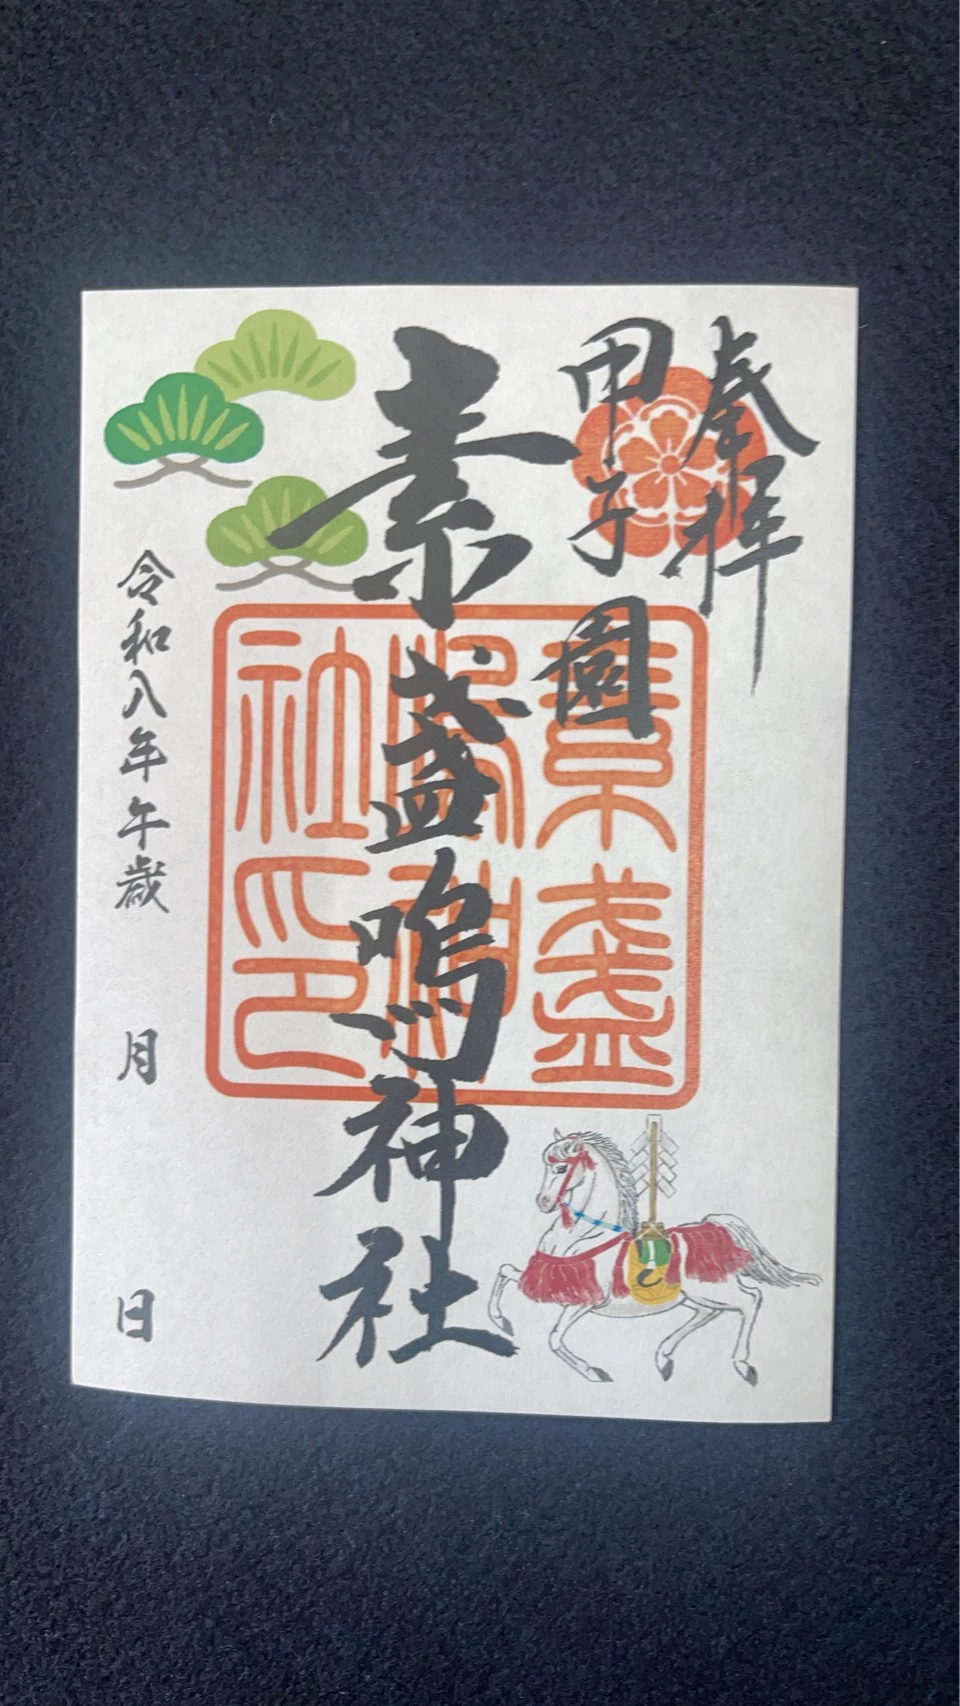 奉拝
甲子園
素盞嗚神社
素盞
嗚神
社印
令和八年午歳　月　日